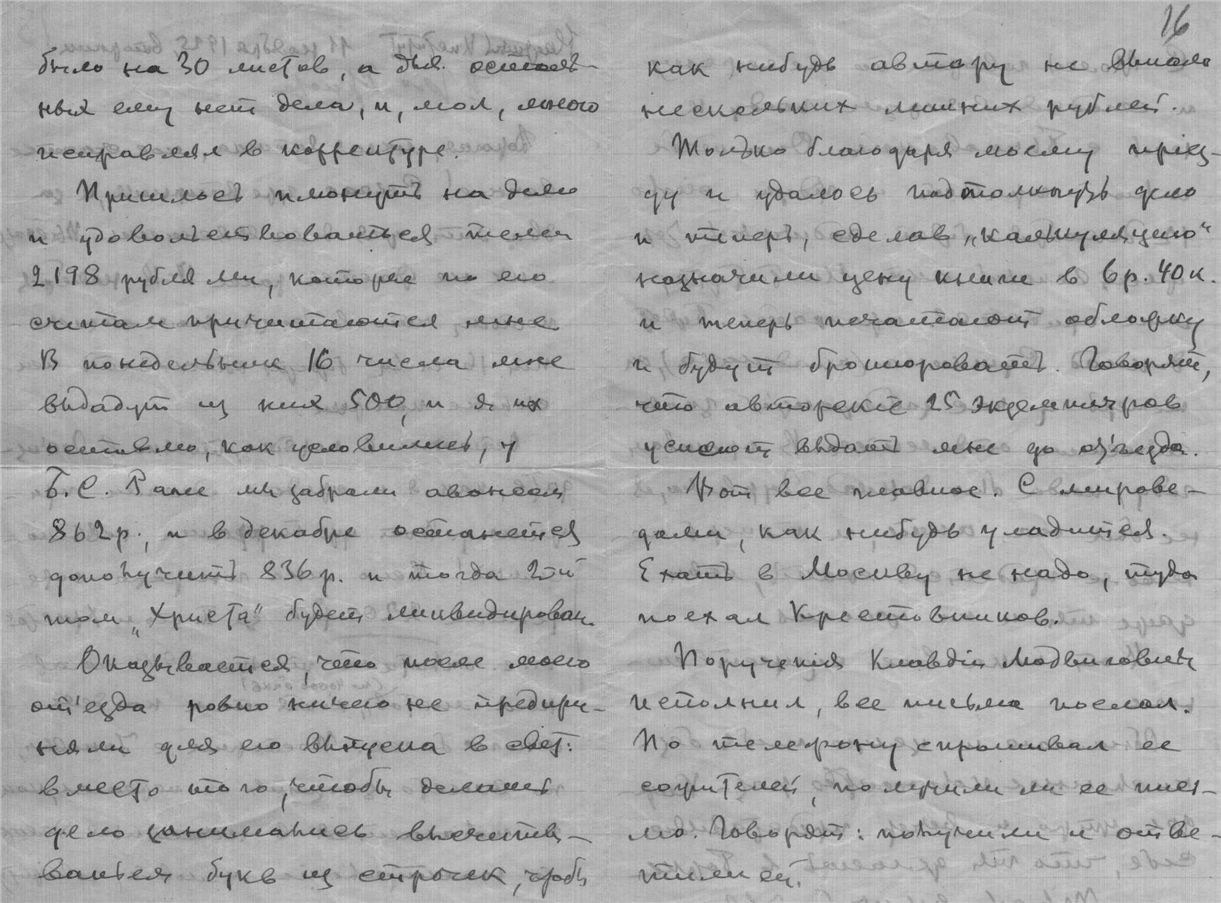 было на 30 листов, а для осталь-
ныя ему нет дела, и, мол, много
исправлял в корректуре.
Пришлось плюнуть на дело
и удовольствоваться теми
2198 рублями, которые по его
счетам причитаются мне
В понедельник 16 числа мне
выдадут из них 500, и я их
оставлю, как условились, у
Б.С. Ранее мы забрали авансом
862 р., и в декабре останется
дополучить 836 р. и тогда 2ой
том „Христа" будет ликвидирован.
Оказывается, что после моего
от'езда ровно ничего не предпри-
няли для его выпуска в свет:
вместо того, чтобы делать
дело занимались высчиты-
ваньем букв из строчек, чтобы
16
как нибудь автору не выпало
нескольких лишних рублей.
Только благодаря моему приез-
ду и удалось подтолкнуть дело
и теперь, сделав „калькуляцию"
назначили цену книги в 6 р. 40 к.
и теперь печатают обложку
и будут брошюровать. Говорят,
что авторские 25 экземпляров
успеют выдать мне до от'езда.
Вот все главное. С мирове-
дами, как нибудь уладится.
Ехать в Москву не надо, туда
поехал Крестовников.
Поручения Клавдии Людвиговны
исполнил, все письма послал.
По телефону спрашивал ее
сожителей, получили ли ее пись-
мо. Говорят: получили и отве-
тили ей.